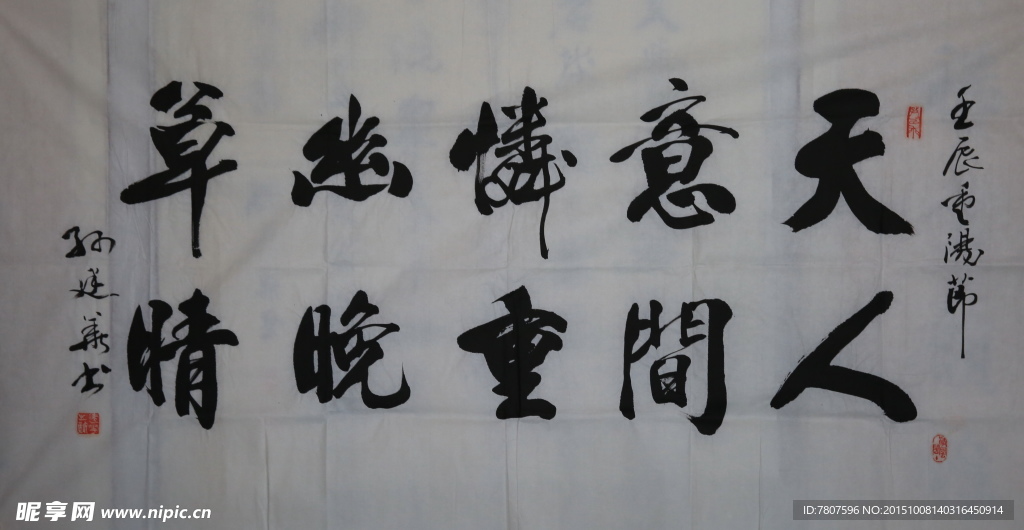 壬辰重陽節
天意憐幽草
人間重晚晴
孫 華書
昵享网 www.nipic.cn
ID:7807596 NO:20151008140316450914